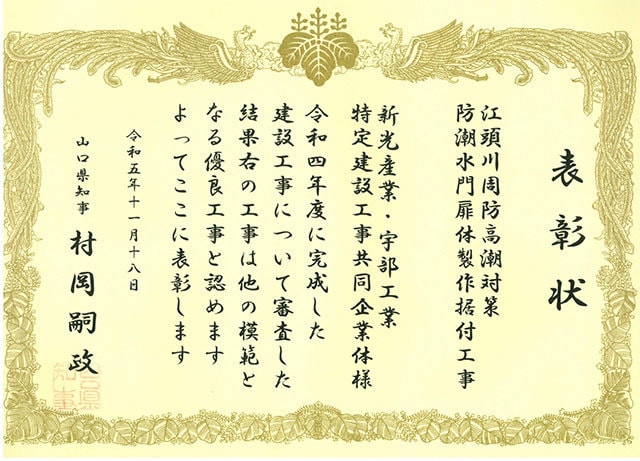 表彰状
江頭川周防高潮対策
防潮水門扉体製作据付工事
新光産業・宇部工業
特定建設工事共同企業体様
令和四年度に完成した
建設工事について審査した
結果右の工事は他の模範と
なる優良工事と認めます
よってここに表彰します
令和五年十一月十八日
山口県知事
村岡嗣政